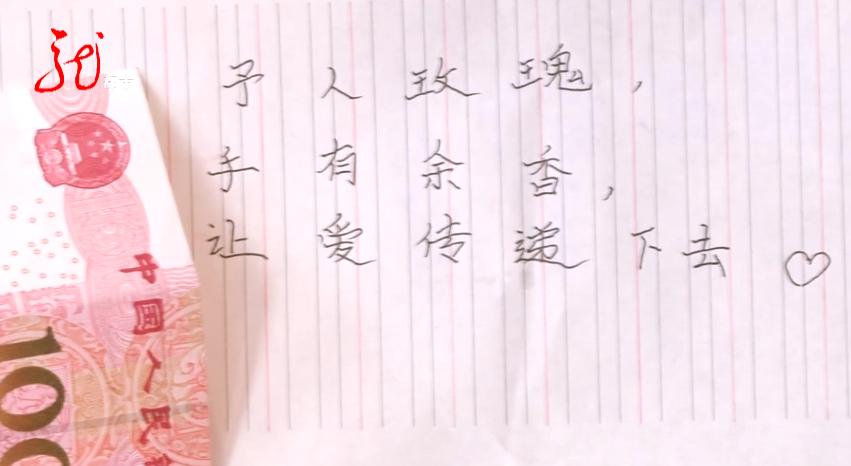 龙
予人玫瑰，
手有余香，
让爱传递下去♡
中国人民
100